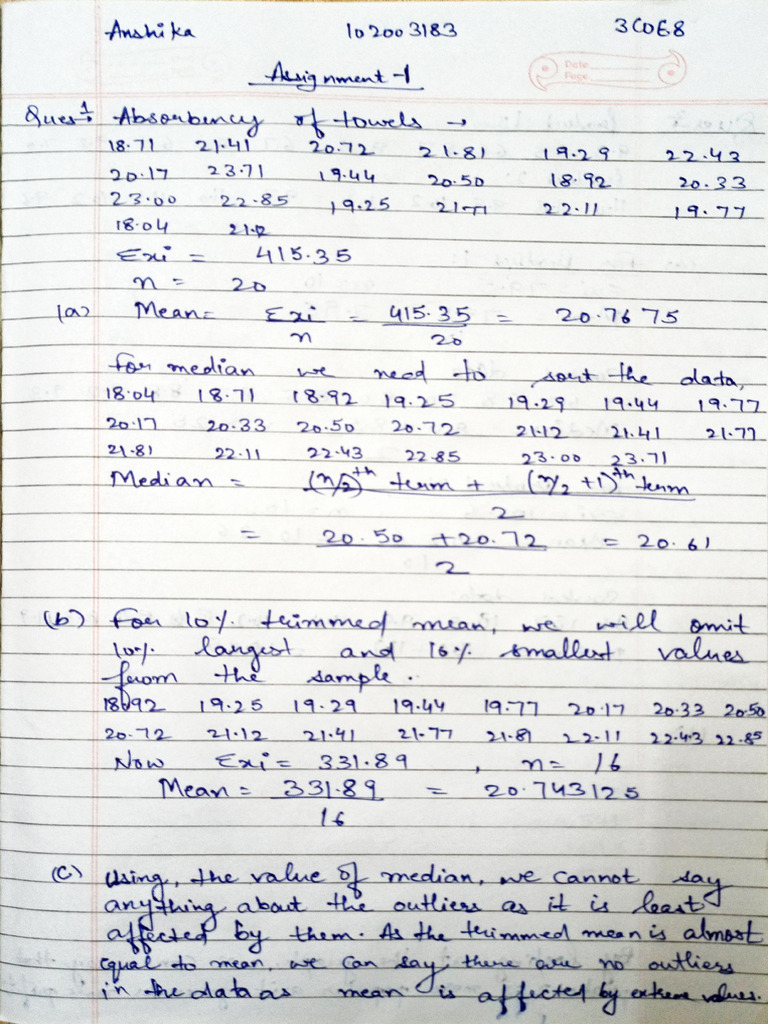 Anshika 102003183 3COE8
Date
Page
Assignment-1
Ques 1. Absorbency of towels →
18.71 21.41 20.72 21.81 19.29 22.43
20.17 23.71 19.44 20.50 18.92 20.33
23.00 22.85 19.25 21.77 22.11 19.77
18.04 21.12
Σxi = 415.35
n = 20
(a) Mean = Σxi/n = 415.35/20 = 20.7675
for median we need to sort the data,
18.04 18.71 18.92 19.25 19.29 19.44 19.77
20.17 20.33 20.50 20.72 21.12 21.41 21.77
21.81 22.11 22.43 22.85 23.00 23.71
Median = ((n/2)th term + (n/2 +1)th term)/2
= (20.50 + 20.72)/2 = 20.61
(b) For 10% trimmed mean, we will omit
10% largest and 10% smallest values
from the sample.
18.92 19.25 19.29 19.44 19.77 20.17 20.33 20.50
20.72 21.12 21.41 21.77 21.81 22.11 22.43 22.85
Now Σxi = 331.89 , n = 16
Mean = 331.89/16 = 20.743125
(c) Using, the value of median, we cannot say
anything about the outliers as it is least
affected by them. As the trimmed mean is almost
equal to mean, we can say, there are no outliers
in the data as mean is affected by extreme values.